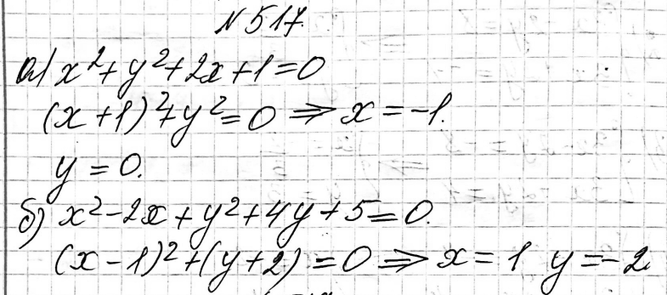 №517.
а) x²+y²+2x+1=0
(x+1)²+y²=0 ⇒ x=-1.
y=0.
б) x²-2x+y²+4y+5=0.
(x-1)²+(y+2)=0 ⇒ x=1 y=-2